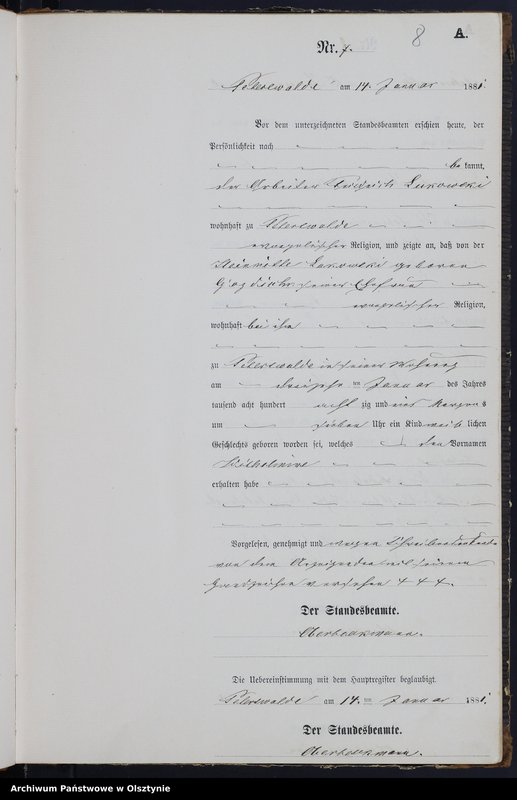 8
A.
Nr. 7.
Peterswalde am 14. Januar 1881
Vor dem unterzeichneten Standesbeamten erschien heute, der
Persönlichkeit nach
bekannt,
der Arbeiter Lukowski
wohnhaft zu Peterswalde
evangelischer Religion, und zeigte an, daß von der
Lukowski geborene
seiner Ehefrau
evangelischer Religion,
wohnhaft bei ihm
zu Peterswalde in seiner Wohnung
am dreizehnten Januar des Jahres
tausend acht hundert achtzig und eins Morgens
um sieben Uhr ein Kind weiblichen
Geschlechts geboren worden sei, welches den Vornamen
Wilhelmine
erhalten habe
Vorgelesen, genehmigt und wegen Schreibensunkunde
von dem Anzeigenden mit seinem
Handzeichen versehen + + +.
Der Standesbeamte.
Die Uebereinstimmung mit dem Hauptregister beglaubigt.
Peterswalde am 14. ten Januar 1881.
Der Standesbeamte.
Archiwum Państwowe w Olsztynie